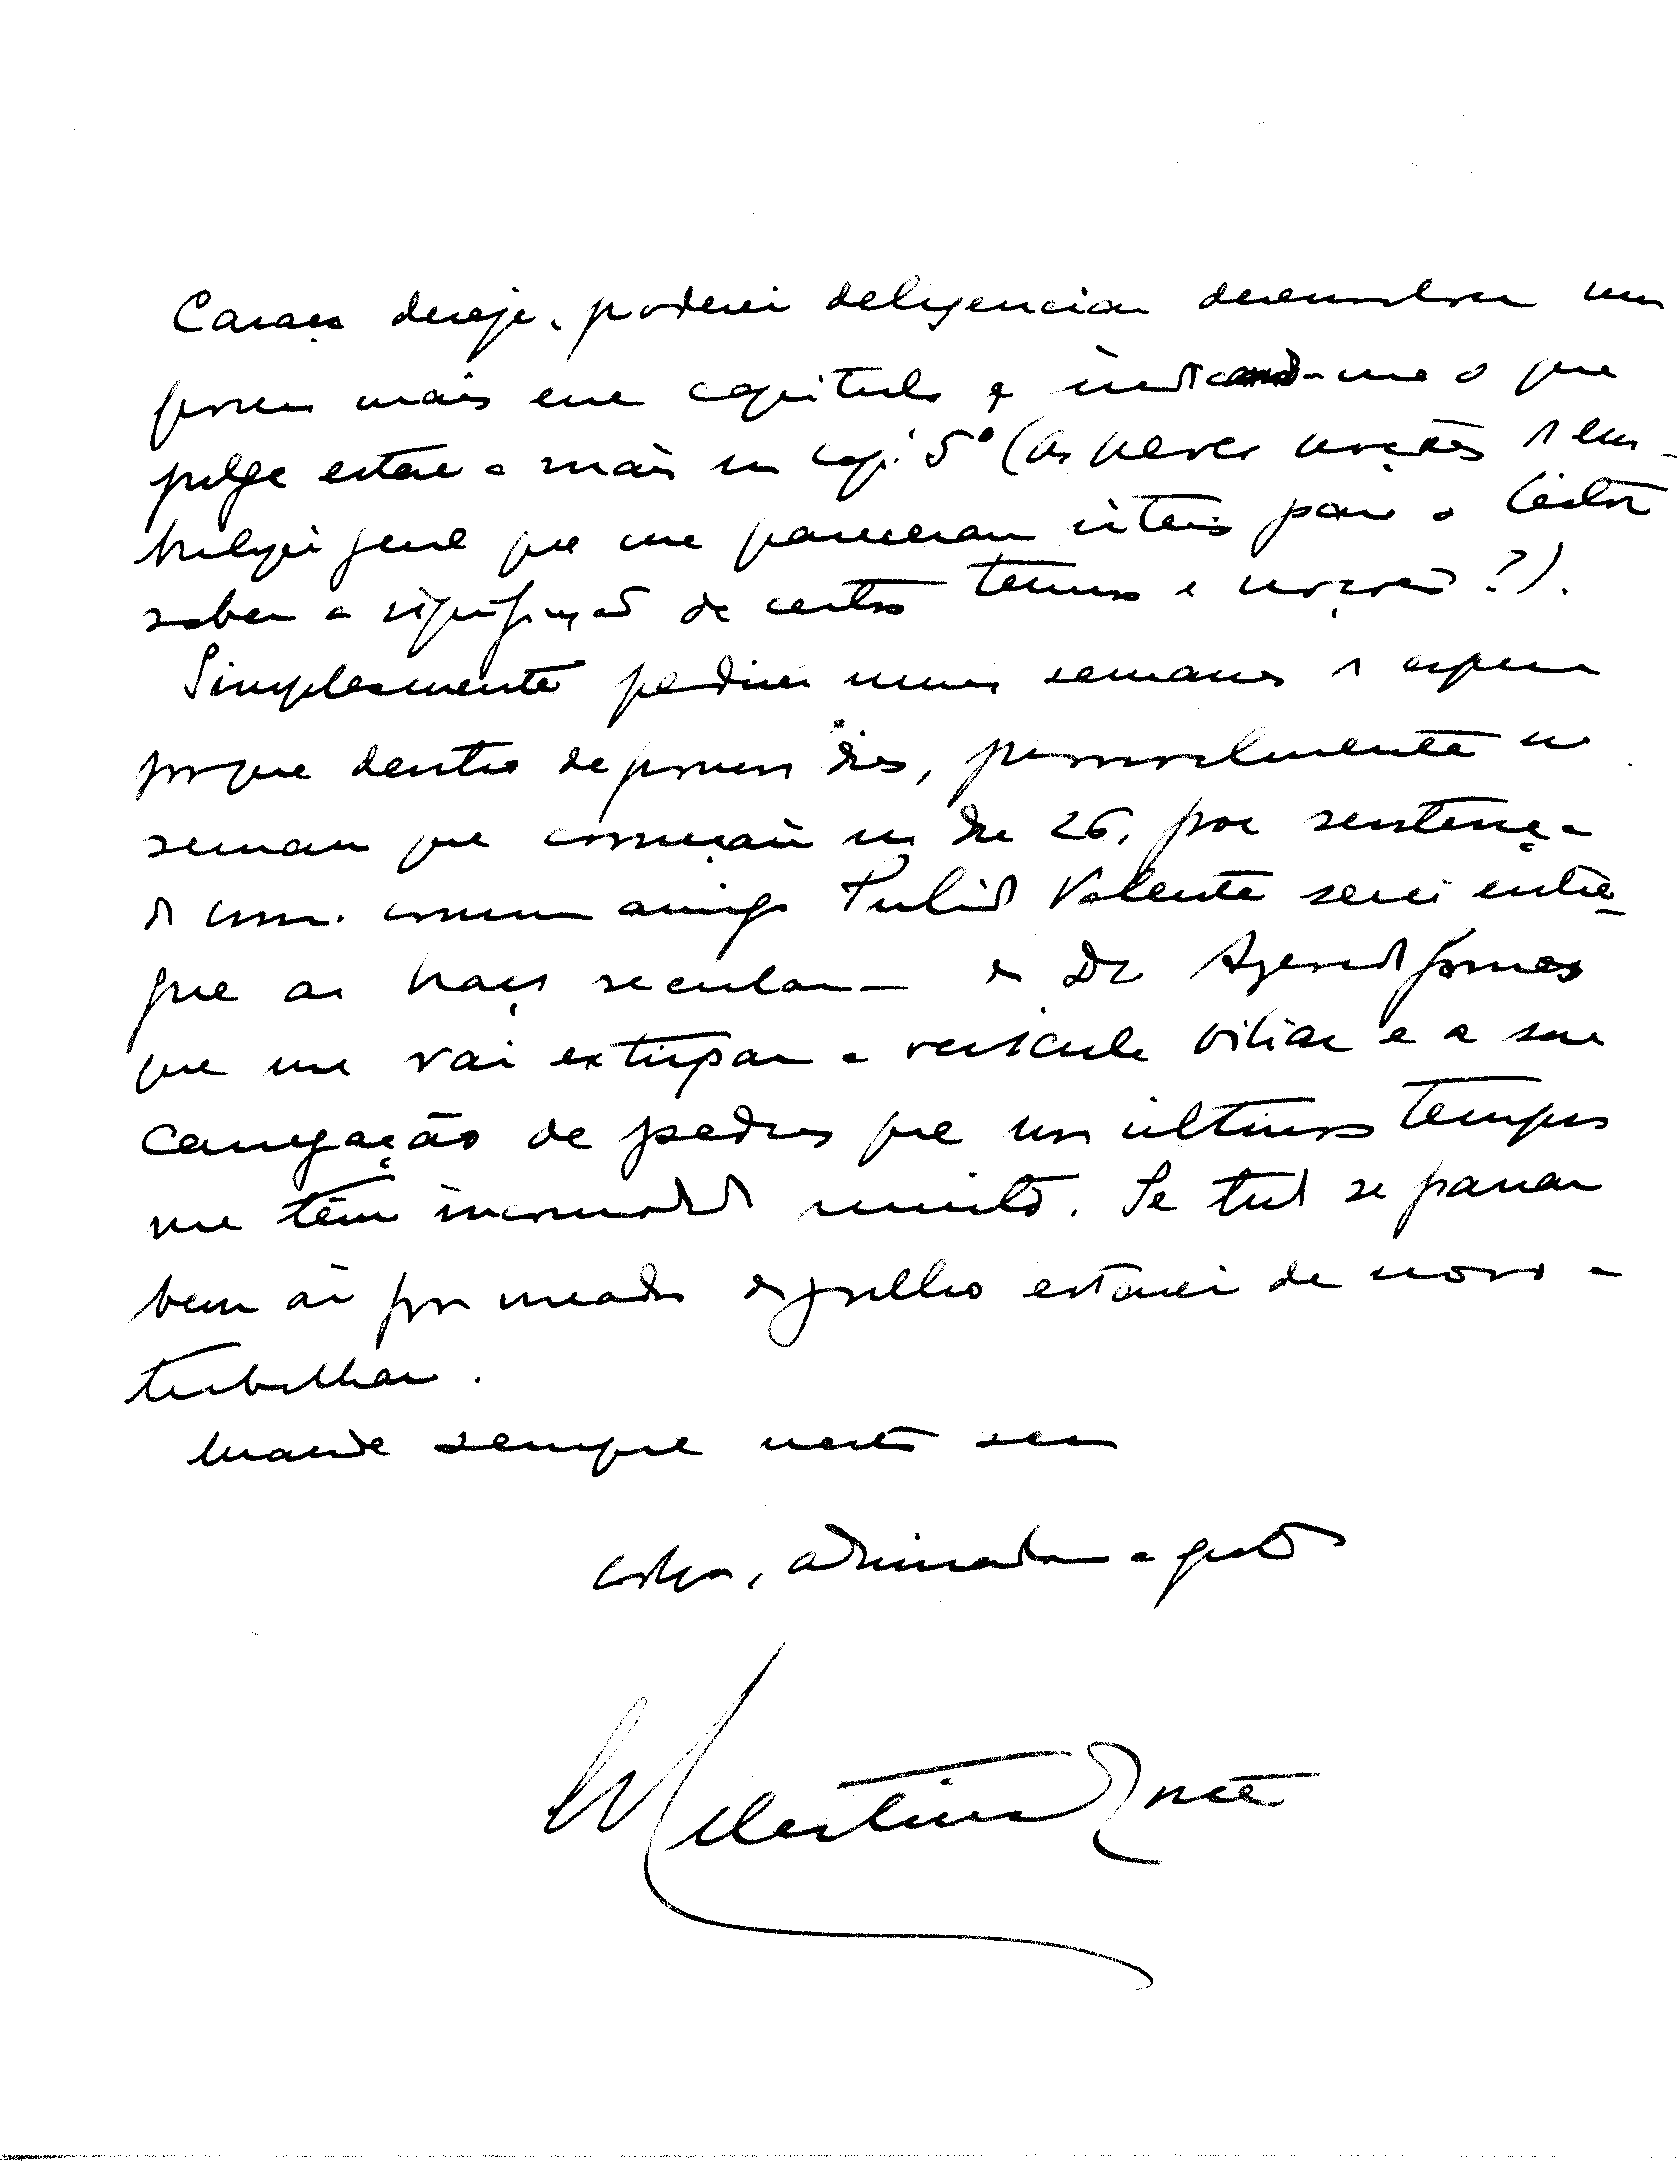 Caraça deseje, poderei deligenciar desenvolver um
pouco mais esse capitulo e indicando-me o que
julge estar a mais no cap. 5º (As breves noções d'em-
briologia geral que me pareceram uteis para o leitor
saber a significação de certos termos e noções?).
Simplesmente pedirei umas semanas d'espera
porque dentro de poucos dias, provavelmente na
semana que começará no dia 26, por sentença
do comum amigo Pulido Valente serei entre-
gue ao braço secular — o Dr Azevedo Gomes
que me vai extirpar a vesicula biliar e a sua
carregação de pedras que nos ultimos tempos
me têm incomodado muito. Se tudo se passar
bem aí por meados de Julho estarei de novo a
trabalhar.
Mande sempre neste seu
colega, admirador e grato
Celestino da Costa